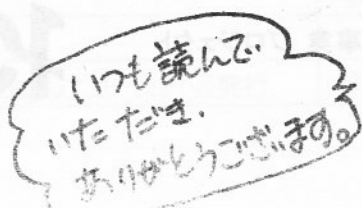 いつも読んで
いただき、
ありがとうございます。